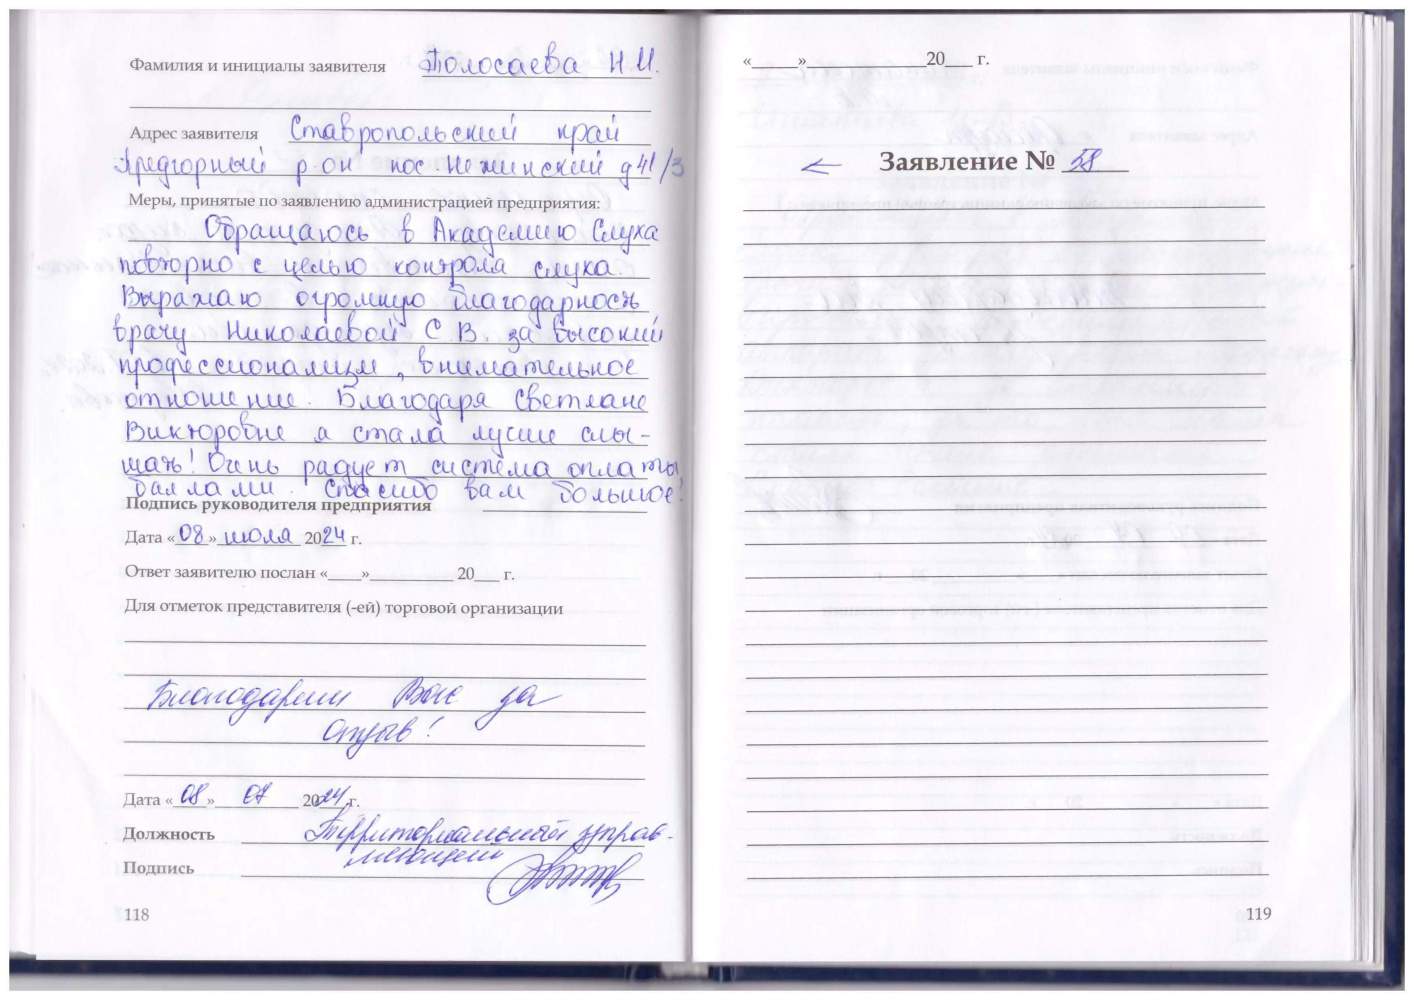 Фамилия и инициалы заявителя Полосаева Н.И.
Адрес заявителя Ставропольский край
Предгорный р-он пос. Нежинский д 41/3
Меры, принятые по заявлению администрацией предприятия:
Обращаюсь в Академию Слуха
повторно с целью контроля слуха.
Выражаю огромную благодарность
врачу Николаевой С.В. за высокий
профессионализм, внимательное
отношение. Благодаря Светлане
Викторовне я стала лучше слы-
шать! Очень радует система оплаты
баллами. Спасибо вам большое!
Подпись руководителя предприятия
Дата «08» июля 2024 г.
Ответ заявителю послан «____»__________ 20___ г.
Для отметок представителя (-ей) торговой организации
Благодарим Вас за
отзыв!
Дата «08» 07 2024 г.
Должность Территориальный управ-
ляющий
Подпись
118
«_____»______________20___ г.
← Заявление № 58
119